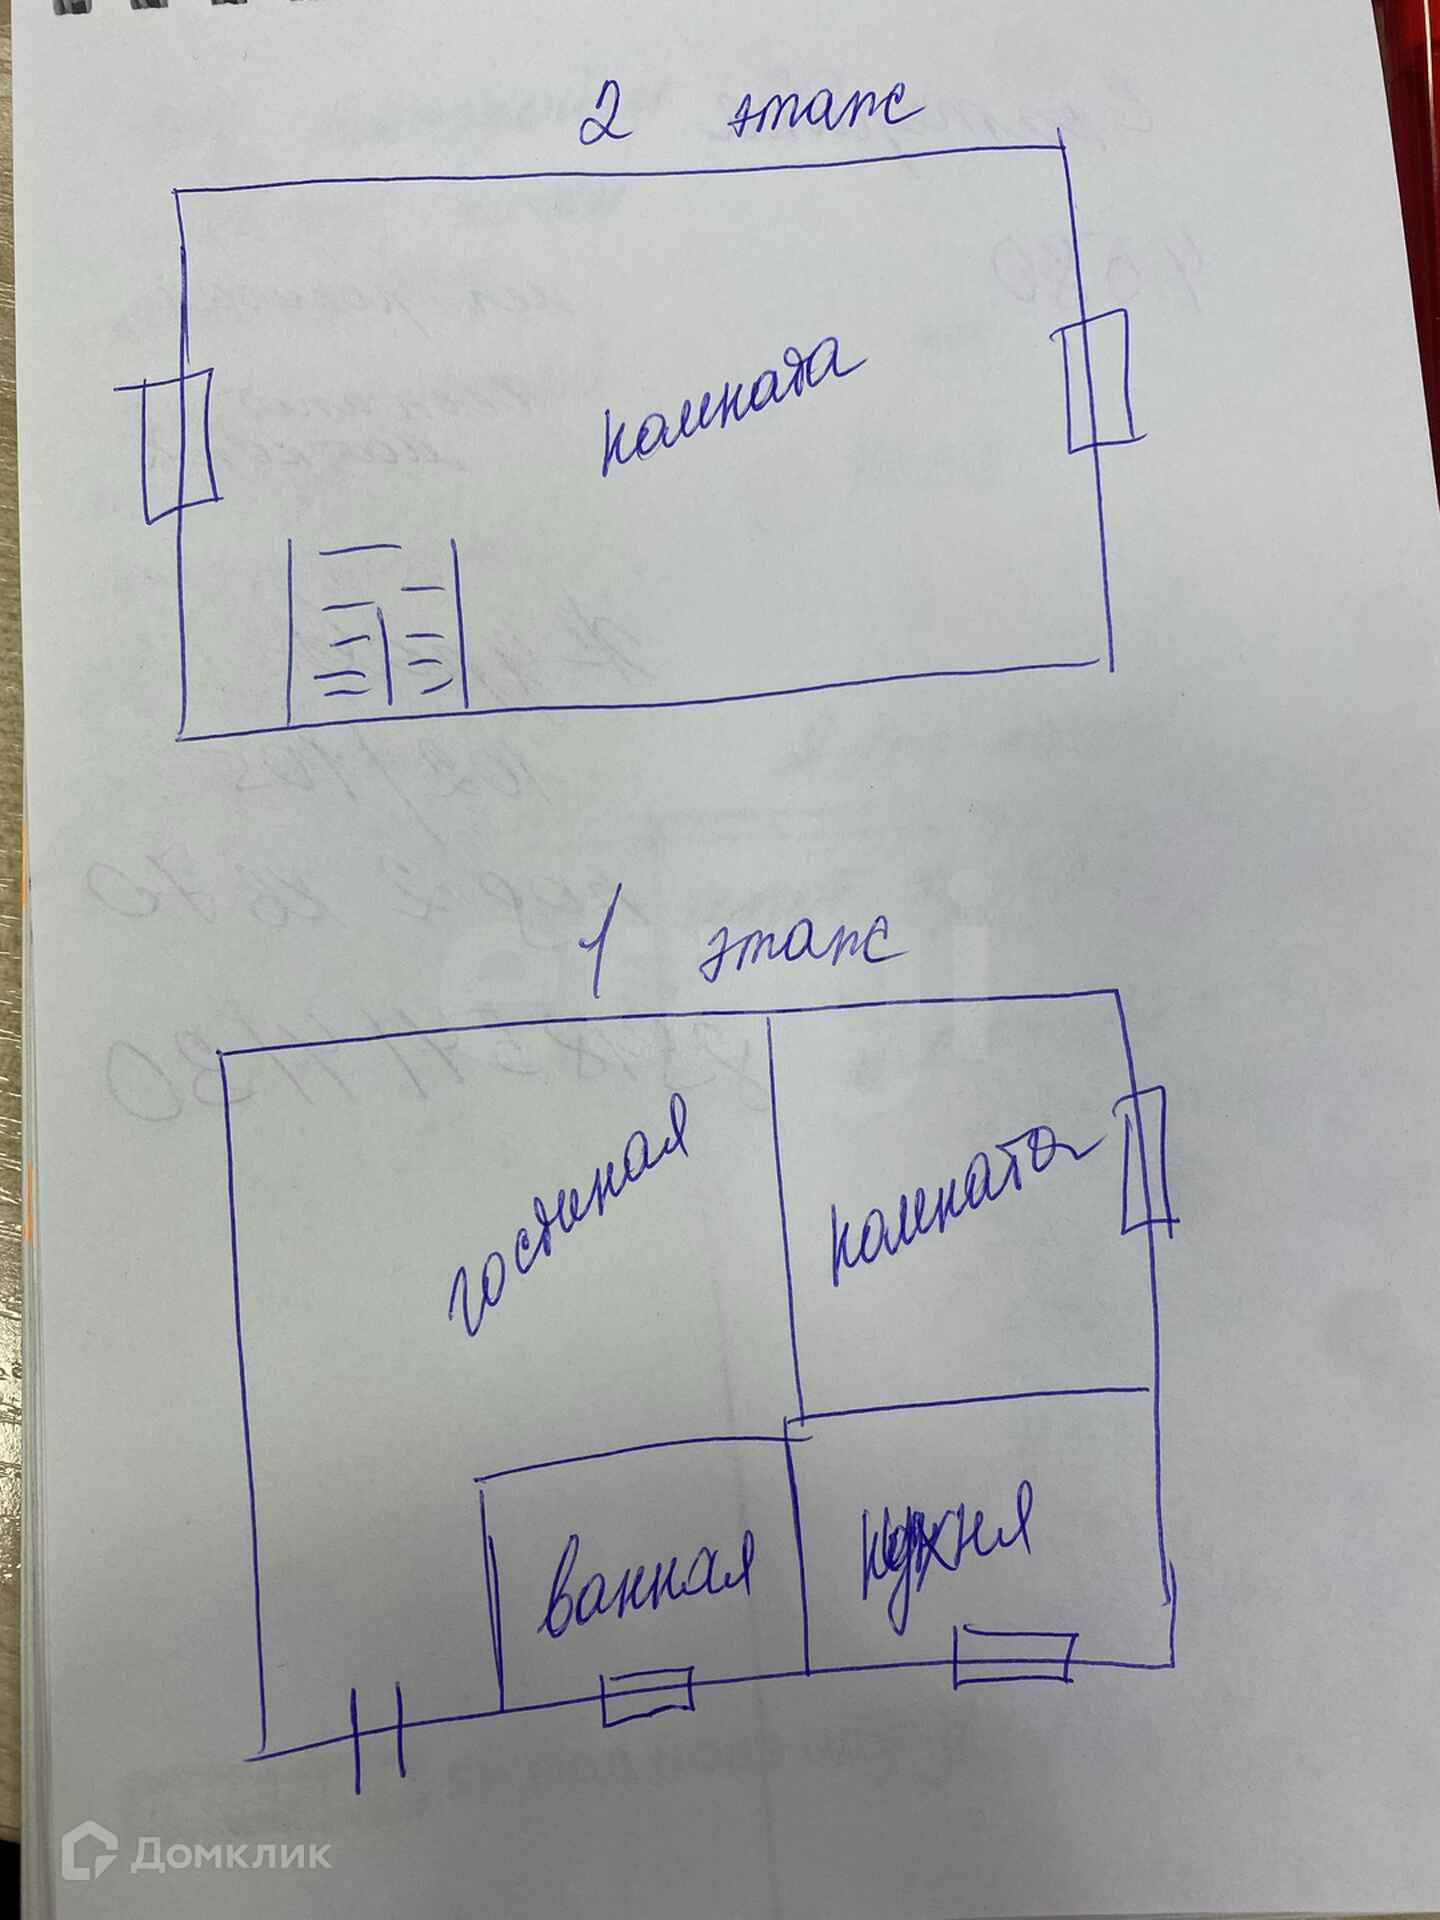 2 этаж
комната
1 этаж
гостиная
комната
ванная
кухня
Домклик